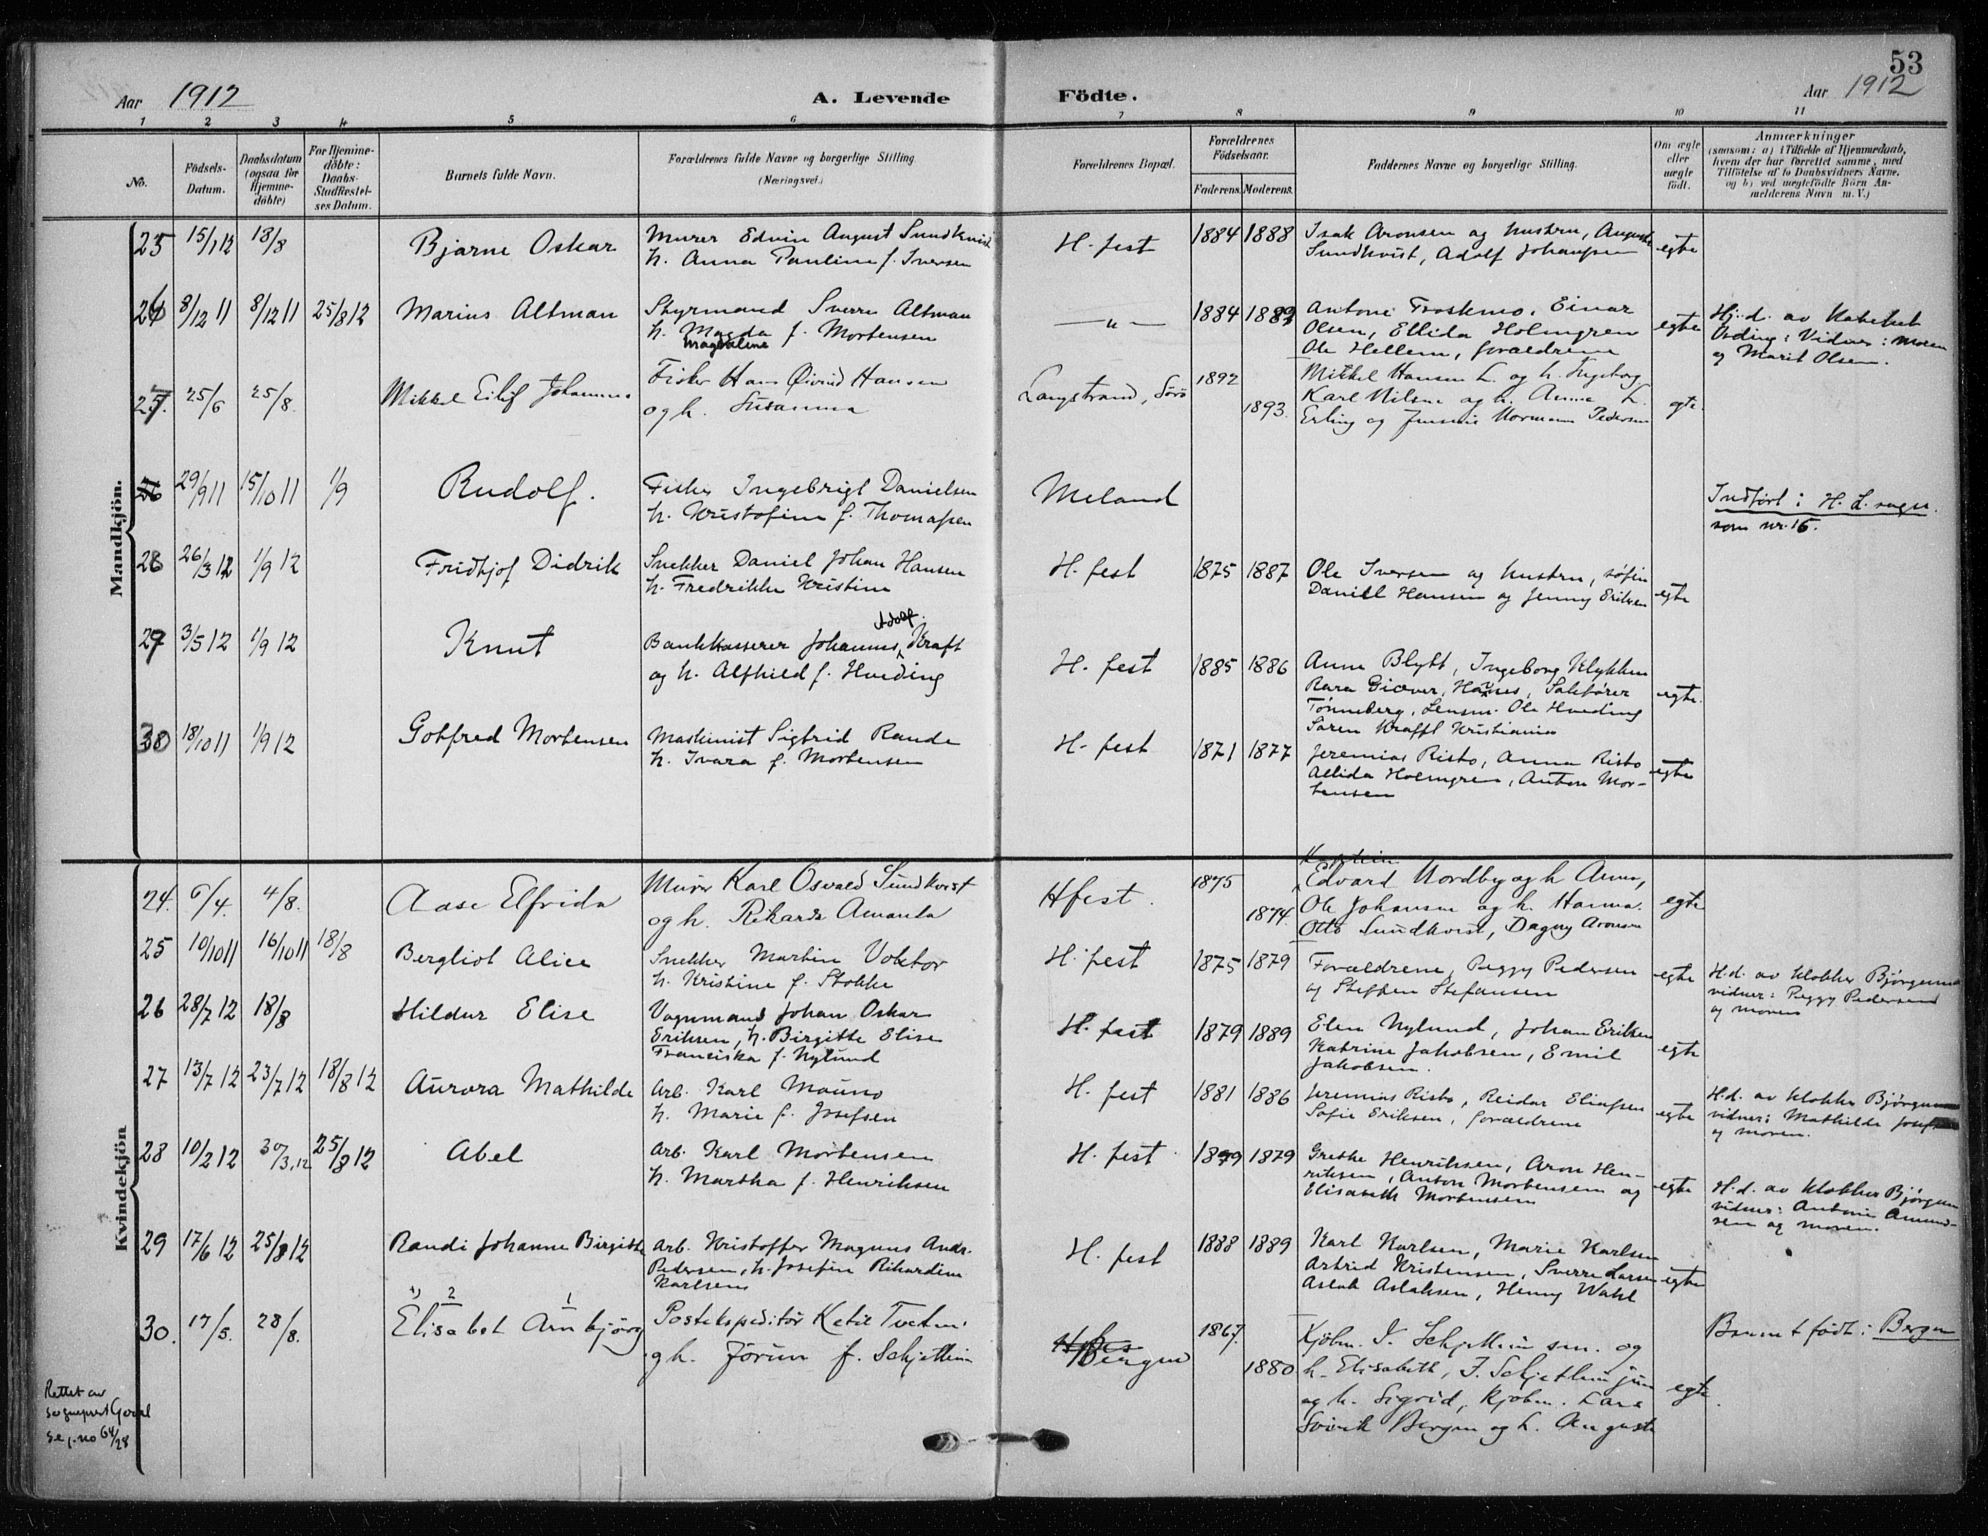 53
Aar 1912
A. Levende
Födte.
Aar 1912
1 2 3 4 5 6 7 8 9 10 11
No.
Födsels-
Datum.
Daabsdatum
(ogsaa for
Hjemme-
döbte)
For Hjemme-
döbte:
Daabs-
Stadfæstel-
ses Datum.
Barnets fulde Navn.
Forældrenes fulde Navne og borgerlige Stilling
(Næringsvei.)
Forældrenes Bopæl.
Forældrenes
Födselsaar.
Faderens.
Moderens.
Faddernes Navne og borgerlige Stilling.
Om ægte
eller
uægte
födt.
Anmærkninger
(saasom: a) i Tilfælde af Hjemmedaab,
hvem der har forrettet samme, med
Tilföielse af to Daabsvidners Navne,
og b) ved uægtefödte Börn An-
melderens Navn m. V.)
Mandkjön.
25 15/1 12 18/8 Bjarne Oskar
Murer Edvin August Sundkvist
h. Anna Pauline f. Iversen
H. fest 1884 1888
Isak Aronsen og hustru, Auguste
Sundkvist, Adolf Johansen
egte
26 8/12 11 8/12 11 25/8 12 Marius Altman
Styrmand Sverre Altman
h. Magda f. Mortensen
Magdaline
— " — 1884
Antoni Froskmo, Einar
Olsen, Ellida Holmgren
Ole Hellem, forældrene
egte
Hj. d. av
Vidner: Moren
og Marit Olsen.
27. 25/6 25/8. Mikkel Eilif Johannes
Fisker Hans Øivind Hansen
og h. Susanna
Langstrand, Sørö 1892
1893.
Mikkel Hansen L. og h. Ingeborg
Karl Nilsen og h. Anna L.
Erling og Normann Pedersen
egte.
26 29/9 11 15/10 11 1/9 Rudolf.
Fisker Ingebrigt Danielsen
h. Kristofine f. Thomassen
Meland
Indført i H. L. sogn.
som nr. 16.
28 26/3 12 1/9 12 Fridtjof Didrik
Snekker Daniel Johan Hansen
h. Fredrikke Kristine
H. fest 1875 1887
Ole Iversen og hustru, Sofie
Daniel Hansen og Jenny Eriksen
egte
29 3/5 12 1/9 12 Knut
Adolf.
Bankkasserer Johannes Kraft
og h. Alfhild f. Hveding
H. fest 1885 1886
Anne Blytt, Ingeborg Klykken
Rara Giæver, Sakfører
Tønneberg, Lensm. Ole Hveding
Søren Krafft Kristiania
egte.
30 18/10 11 1/9 12 Gotfred Mortensen
Maskinist Sigfrid Rande
h. Ivara f. Mortensen
H. fest 1871 1877
Jeremias Risto, Anna Risto
Allida Holmgren, Anton Mor-
tensen
egte
Kvindekjön
24. 6/4. 4/8. Aase Elfrida
Murer Karl Osvald Sundkvist
og h. Rikarda Amanda
Hfest. 1875
1874.
Kaptein
Edvard Nordby og h Anna,
Ole Johansen og h. Hanna.
Otto Sundkvist, Dagny Aronsen
egte
25 10/10 11 16/10 11 18/8 Bergliot Alice
Snekker Martin Voktor
h. Kristine f. Stokke
H. fest 1875 1879
Forældrene, Peggy Pedersen
og Steffen Stefansen
egte
H. d. av klokker Bjørgum
vidner: Peggy Pedersen
og moren
26 28/7 12 18/8 Hildur Elise
Vognmand Johan Oskar
Eriksen, h. Birgitte Elise
Franciska f. Nylund
H. fest 1879 1889
Elen Nylund, Johan Eriksen
Katrine Jakobsen, Emil
Jakobsen.
egte
27 13/7 12 23/7 12 18/8 12 Aurora Mathilde
Arb. Karl Mauno
h. Marie f. Josefsen
H. fest 1881 1886
Jeremias Risto, Reidar Eliassen
Sofie Eriksen, forældrene
egte
H. d. av klokker Bjørgum
vidner: Mathilde Josefsen
og moren.
28 10/2 12 30/3.12 25/8 12 Abel
Arb. Karl Mortensen
h. Martha f. Henriksen
H. fest 1879 1879
Grethe Henriksen, Aron Hen-
riksen, Anton Mortensen og
Elisabeth Mortensen
egte
H. d. av klokker Bjørgum
vidner: Antonie Amund-
sen og moren.
29 17/6 12 25/8 12 Randi Johanne Birgitte
Arb. Kristoffer Magnus Andr.
Pedersen, h. Josefine Rikardine
Karlsen
H. fest 1888 1889
Karl Karlsen, Marie Karlsen
Astrid Kristensen, Sverre Larsen
Aslak Aslaksen, Henny Wahl
egte
30. 17/5. 28/8.
2 1
Elisabet Arnbjörg
Postekspeditör Ketil Tveten
og h. Jörun f. Schjetlein
Bergen 1867.
1880
Kjöbm. I. Schjetlein sen. og
h. Elisabeth, I. Schjetlein jun
og h. Sigrid, Kjøbm. Lars
Bergen og h. Auguste
egte.
Barnet født i Bergen
Rettet av
sogneprest
se j. no 64/28